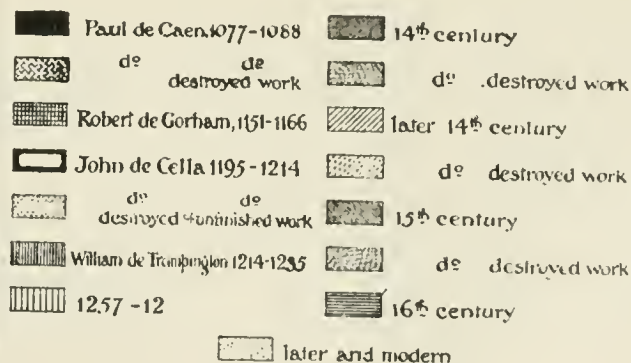 Paul de Caen, 1077-1088
do do
destroyed work
Robert de Gorham, 1151-1166
John de Cella 1195-1214
do do
destroyed & unfinished work
William de Trumpington 1214-1235
1257-12
14th century
do .destroyed work
later 14th century
do destroyed work
15th century
do destroyed work
16th century
later and modern